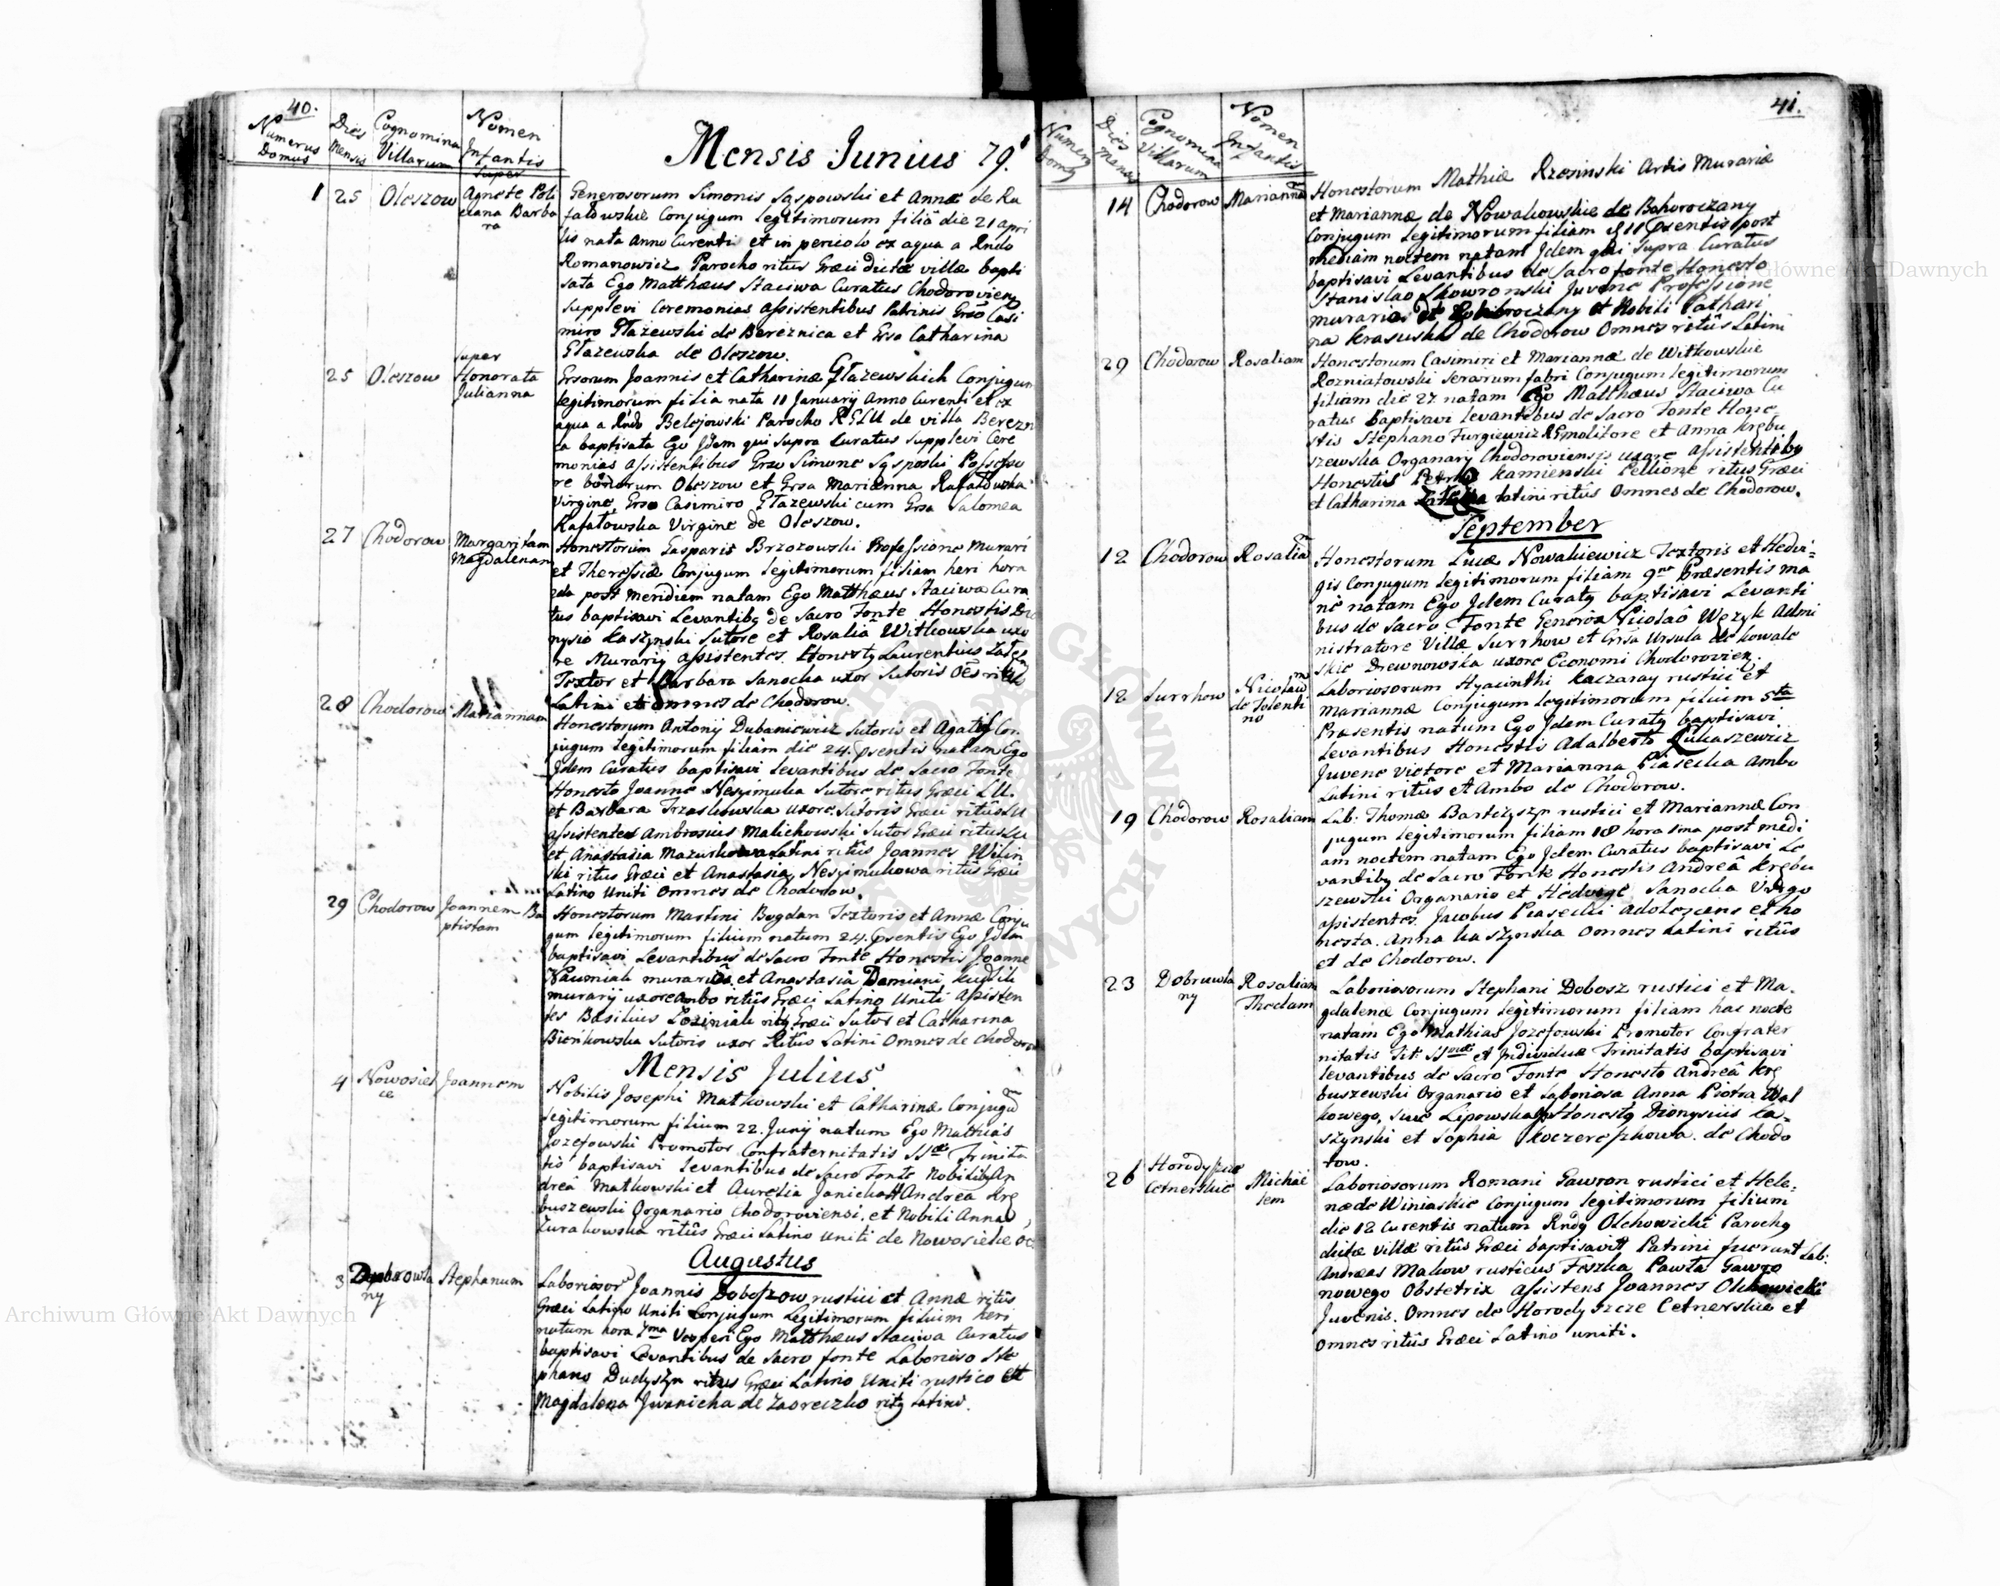 40.
Numerus Domus
Dies Mensis
Cognomina Villarum
Nomen Infantis
Mensis Junius 79.
1 25 Oleszow
super Agnete Poli
xena Barba
ra
Generosorum Simonis Sąspowski et Annæ de Ra
fałowskie Conjugum legitimorum filiã die 21 apri
lis nata Anno Curenti et in periculo ex aqua a Rndo
Romanowicz Parocho ritus Græci dictæ villæ bapti
sata Ego Matthæus Staciwa Curatus Chodorovien
supplevi Ceremonias assistentibus Patrinis Grso Casi
miro Głazewski de Bereznica et Grsa Catharina
Głazewska de Oleszow.
25 Oleszow
super
Honorata
Julianna
Grsorum Joannis et Catharinæ Głazewskich Conjugum
legitimorum filia nata 11 January Anno Curenti et ex
aqua a Rndo Belejowski Parocho R G L U de villa Berezni
ca baptisata Ego Jdem qui supra Curatus supplevi Cere
monias assistentibus Grso Simone Sąsposki Possesso
re bonorum Oleszow et Grsa Marianna Rafałowska
Virgine, Grso Casimiro Głazewski cum Grsa Salomea
Rafałowska Virgine de Oleszow.
27 Chodorow
Margaritam
Magdalenam
Honestorum Gasparis Brzozowski Professione Murari
et Theressiæ Conjugum legitimorum filiam heri hora
2da post meridiem natam Ego Matthæus Staciwa Cura
tus baptisavi Levantibq de Sacro Fonte Honestis Dio
nysio Łaszynski Sutore et Rosalia Witkowska uxo
re Murarij assistentes. Honestq Laurentius
Textor et Barbara Sanocka uxor Sutoris Oẽs ritus
Latini et omnes de Chodorow.
28 Chodorow Mariannam
Honestorum Antonij Dubaniewicz Sutoris et Agatis Con
jugum legitimorum filiam die 24. Psentis natam Ego
Jdem Curatus baptisavi levantibus de Sacro Fonte
Honesto Joanne Neszimuka Sutore ritus Græci L U.
et Barbara Trzaskowska uxore Sutoris Græci ritûs L U
assistentes Ambrosius Malichowski Sutor Græci ritus LU
et Anastasia Mazurkowa Latini ritûs Joannes Wilin
ski ritus Græci et Anastasia Neszimukowa ritûs Græci
Latino Uniti omnes de Chodorow.
29 Chodorow
Joannem Ba
ptistam
Honestorum Martini Bogdan Textoris et Annæ Conju
gum legitimorum filium natum 24. Psentis Ego Jdem
baptisavi Levantibus de Sacro Fonte Honestis Joanne
Naumiak murario et Anastasia Damiani
murarij uxore ambo ritûs Græci Latino Uniti Assisten
tes Basilius Loziniak ritq Græci Sutor et Catharina
Bieńkowska Sutoris uxor Ritûs Latini Omnes de Chodorow
Mensis Julius
4 Nowosiel
ce
Joannem
Nobilis Josephi Matkowski et Catharinæ Conjugũ
legitimorum filium 22. Junij natum Ego Mathias
Jozefowski Promotor Confraternitatis SSmæ Trinita
tis baptisavi levantibus de Sacro Fonte Nobilibq An
dreâ Matkowski et Aurelia Janicka Andrea Krę
buszewski Organario Chodoroviensi. et Nobili Anna
Zurakowska ritûs Græci Latino Uniti de Nowosielce
Augustus
3 Dąbrowla
ny
Stephanum
Laboriosor Joannis Doboszow rustici et Annæ ritûs
Græci Latino Uniti Conjugum Legitimorum filium heri
natum hora 7ma Vesperi Ego Matthæus Staciwa Curatus
baptisavi Levantibus de Sacro fonte Laborioso Ste
phano Dudyszyn ritus Græci Latino Uniti rustico et
Magdalena Jwanicha de Zaoreczko ritq Latino.
41.
Numerq domq
Dies Mensis
Cognomina Villarum
Nomen Infantis
14 Chodorow Mariannã
Honestorum Mathiæ Rzesinski Artis Murariæ
et Mariannæ de Nowakowskie de Bohoroczany
Conjugum legitimorum filiam d 11 Psentis post
mediam noctem natam Jdem qui Supra Curatus
baptisavi Levantibus de Sacro fonte Honesto
Stanislao Skowronski Juvene Professione
muraria de et Nobili Cathari
na Krasuska de Chodorow Omnes ritûs Latini
29 Chodorow Rosaliam
Honestorum Casimiri et Mariannæ de Witkowskie
Rozniatowski Serarum fabri Conjugum legitimorum
filiam die 27 natam Ego Matthæus Staciwa Cu
ratus Baptisavi levantibus de Sacro Fonte Hone
stis Stephano Furgiewicz et Anna Krębu
szewska Organarij Chodoroviensis uxore assistentibq
Honestis Petro Kamienski Pellione ritus Græci
et Catharina latini ritûs Omnes de Chodorow.
September
12 Chodorow Rosaliã
Honestorum Lucæ Nowakiewicz Textoris et Hedvi=
gis Conjugum legitimorum filiam 9na Præsentis ma
ne natam Ego Jdem Curatq baptisavi Levanti
bus de Sacro Fonte Generoso Nicolaô Węzyk Admi
nistratore Villæ Surrhow et Grsa Ursula de Kowale
skie Drewnowska uxore Economi Chodorovien.
12 Surrhow
Nicolaum
de Tolenti
no
Laboriosorum Hyacinthi Kaczaray rustici et
Mariannæ Conjugum legitimorum filium 5ta
Præsentis natum Ego Jdem Curatq baptisavi
levantibus Honestis Adalberto Łukaszewicz
Juvene Victore et Marianna Piasecka Ambo
Latini ritûs et Ambo de Chodorow.
19 Chodorow Rosaliam
Lab: Thomæ Bartłyszyn rustici et Mariannæ Con
jugum legitimorum filiam 18 hora 1ma post medi
am noctem natam Ego Jdem Curatus baptisavi Le
vantibq de Sacro Fonte Honestis Andreâ Krębu
szewski Organario et Hedvige Sanocka Virgo
assistentes Jacobus Piasecki adolezcens et ho
nesta. Anna Łaszynska Omnes Latini ritûs
et de Chodorow.
23 Dobrowla
ny
Rosaliam
Theclam
Laboriosorum Stephani Dobosz rustici et Ma.
gdalenæ Conjugum legitimorum filiam hac nocte
natam Ego Mathias Jozefowski Promotor Confrater
nitatis Tit: SSmæ et Individuæ Trinitatis baptisavi
levantibus de Sacro Fonte Honesto Andreâ Krę
buszewski Organario et Laboriosa Anna Piotra Wal
kowego, suæ Lipowska Honestq Dionysius Ła.
szynski et Sophia Koczereszkowa. de Chodo
row.
26 Horodyszcze
Cetnerskie
Michae
lem
Laboriosorum Romani Gawron rustici et Hele:
næ de Winiaskie Conjugum legitimorum filium
die 12 Curentis natum Rndq Olchowicki Parochq
dictæ villæ ritûs Græci baptisavit Patrini fuerunt Lab:
Andreas Makow rusticus Feszka Pawła Gawro
nowego Obstetrix assistens Joannes Olchowicki
Juvenis. Omnes de Horodyszcze Cetnerskie et
omnes ritûs Græci Latino uniti.
Archiwum Główne Akt Dawnych
Archiwum Główne Akt Dawnych